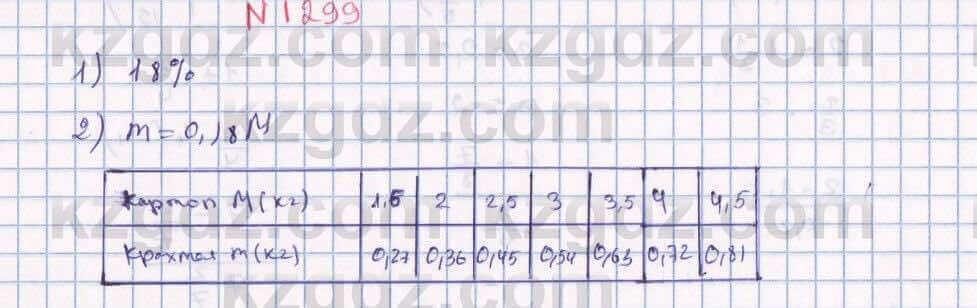 N 1299
1) 18%
2) m = 0,18M
Картоп M(кг) 1,5 2 2,5 3 3,5 4 4,5
Крахмал m(кг) 0,27 0,36 0,45 0,54 0,63 0,72 0,81
kzgdz.com kzgdz.com
kzgdz.com kzgdz.com
kzgdz.com kzgdz.com
kzgdz.com kzgdz.com